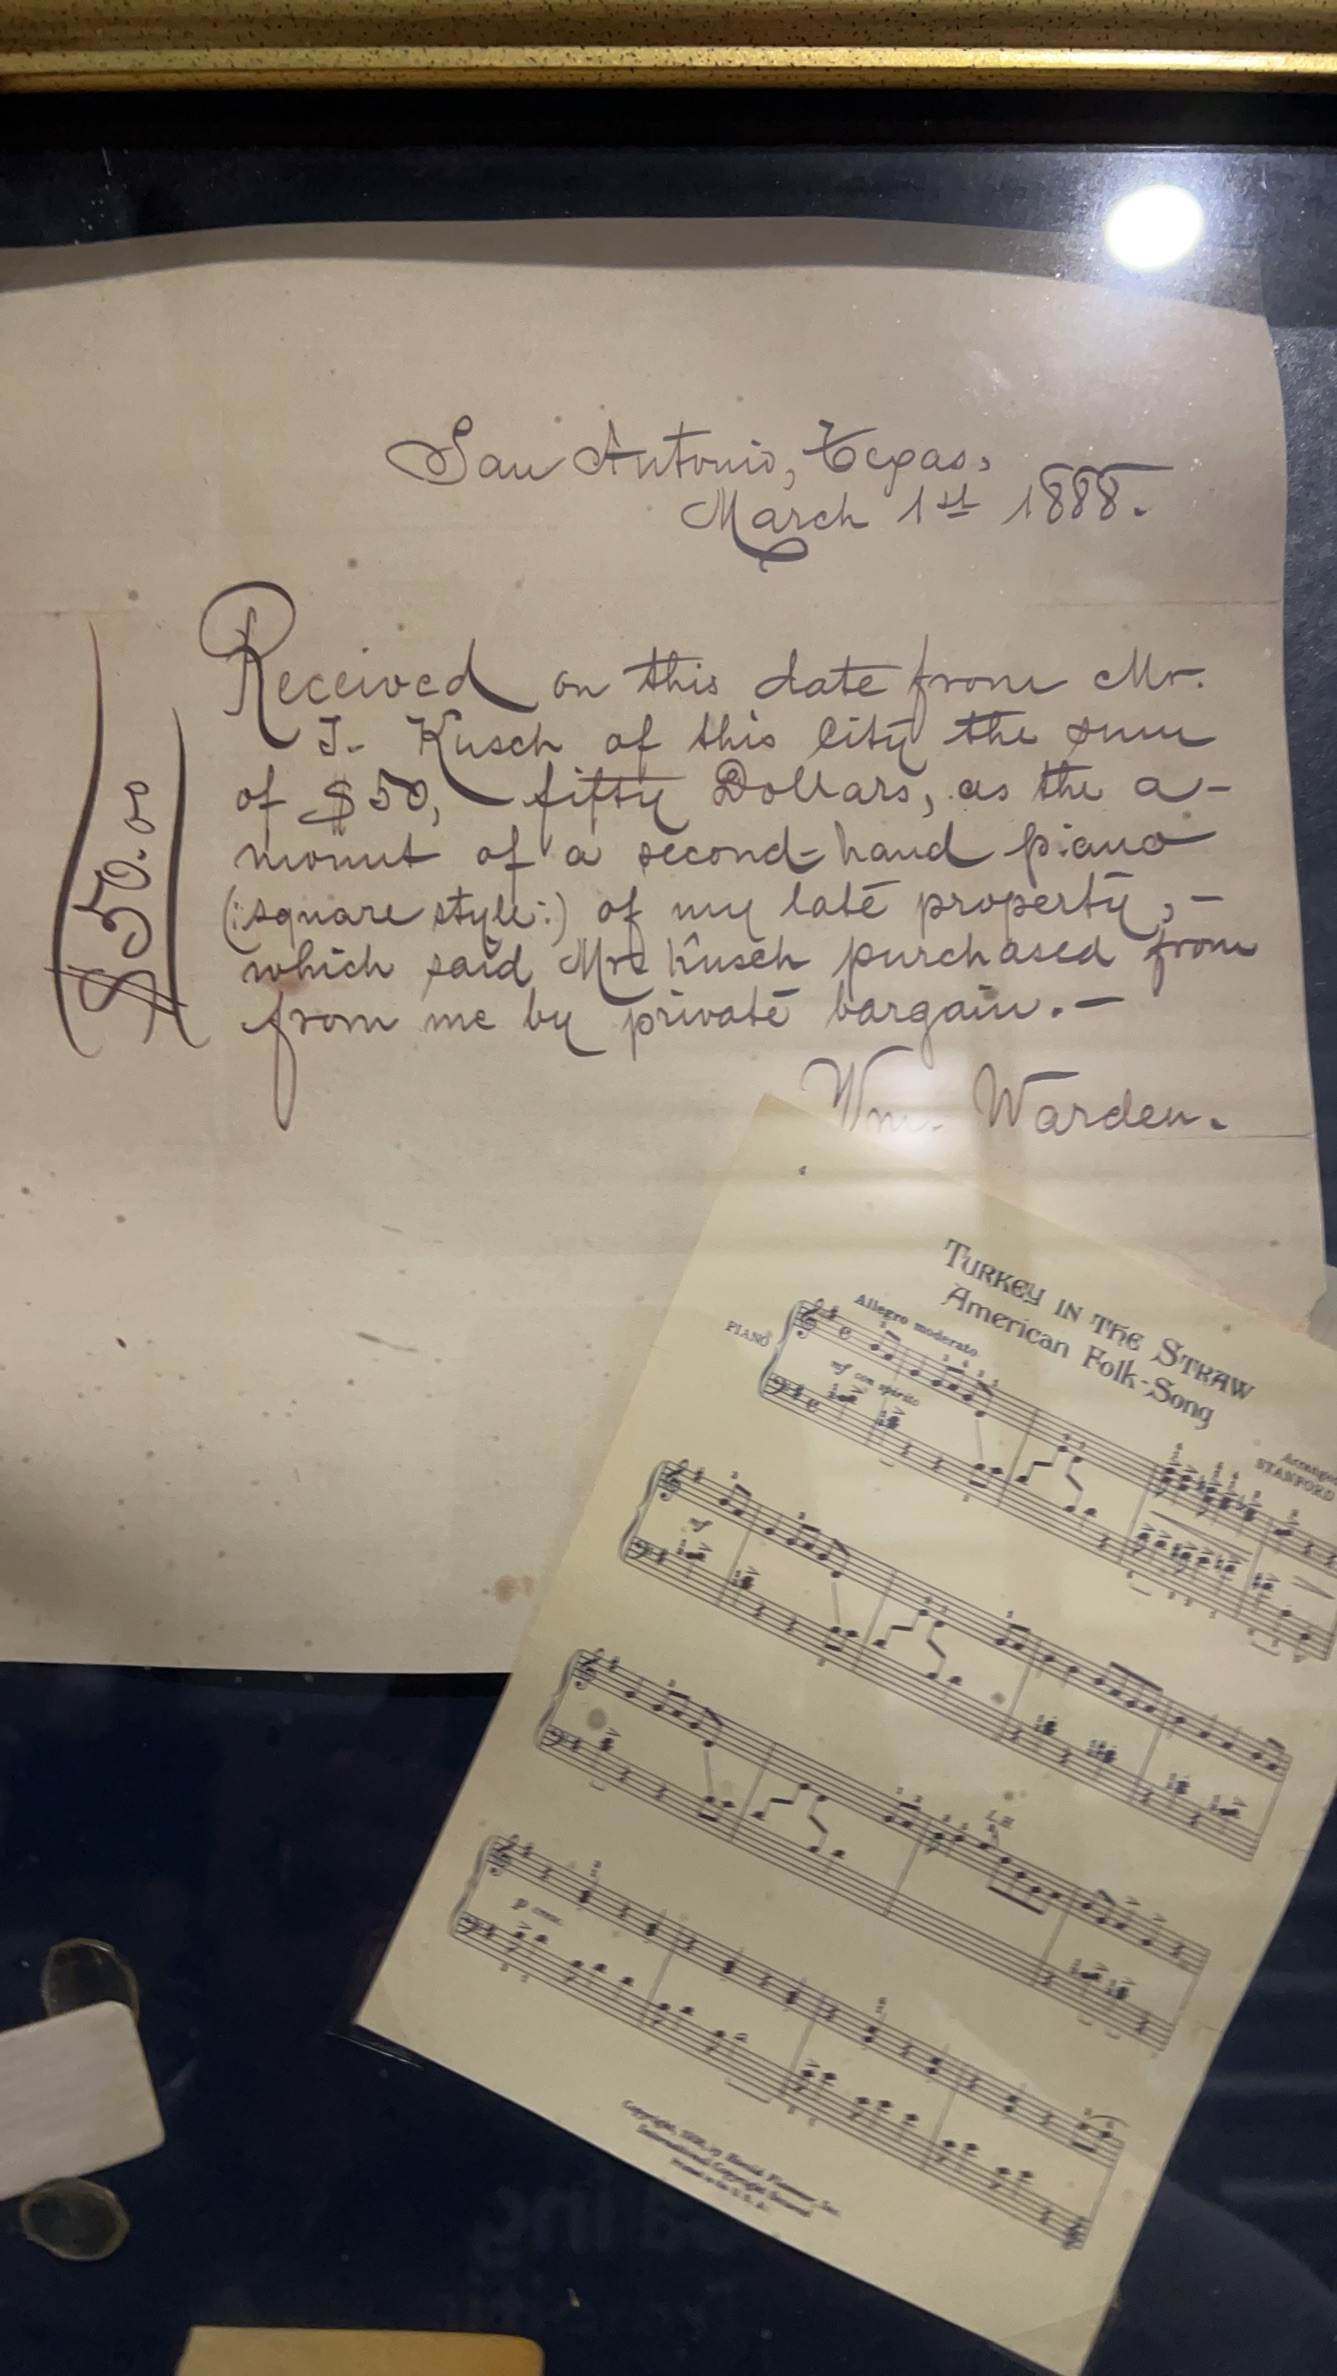 San Antonio, Texas,
March 1st 1888.
$50.00
Received on this date from Mr.
J. Kusch of this City the sum
of $50, fifty Dollars, as the a-
mount of a second-hand piano
(:square style:) of my late property, -
which said Mr. Kusch purchased from
from me by private bargain. -
Wm. Warden.
TURKEY IN THE STRAW
American Folk-Song
STANFORD
Allegro moderato
PIANO
mf con spirito
mf
L.H.
p
International Copyright Secured